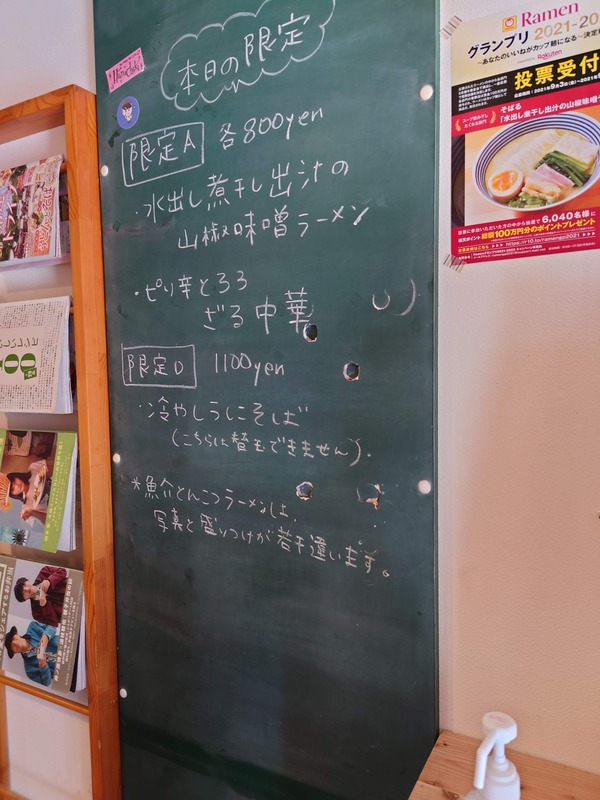 本日の限定
限定A 各800yen
・水出し煮干し出汁の
山椒味噌ラーメン
・ピリ辛とろろ
ざる中華
限定D 1100yen
・冷やしうにそば
(こちらは替玉できません).
*魚介とんこつラーメンは
写真と盛りつけが若干違います。
Ramen
グランプリ 2021-20
～あなたのいいねがカップ麺になる～決定
Rakuten
投票受付
そばる
「水出し煮干し出汁の山椒味噌
6,040名様に
総額100万円分のポイントプレゼント
https://r10.to/ramengp2021